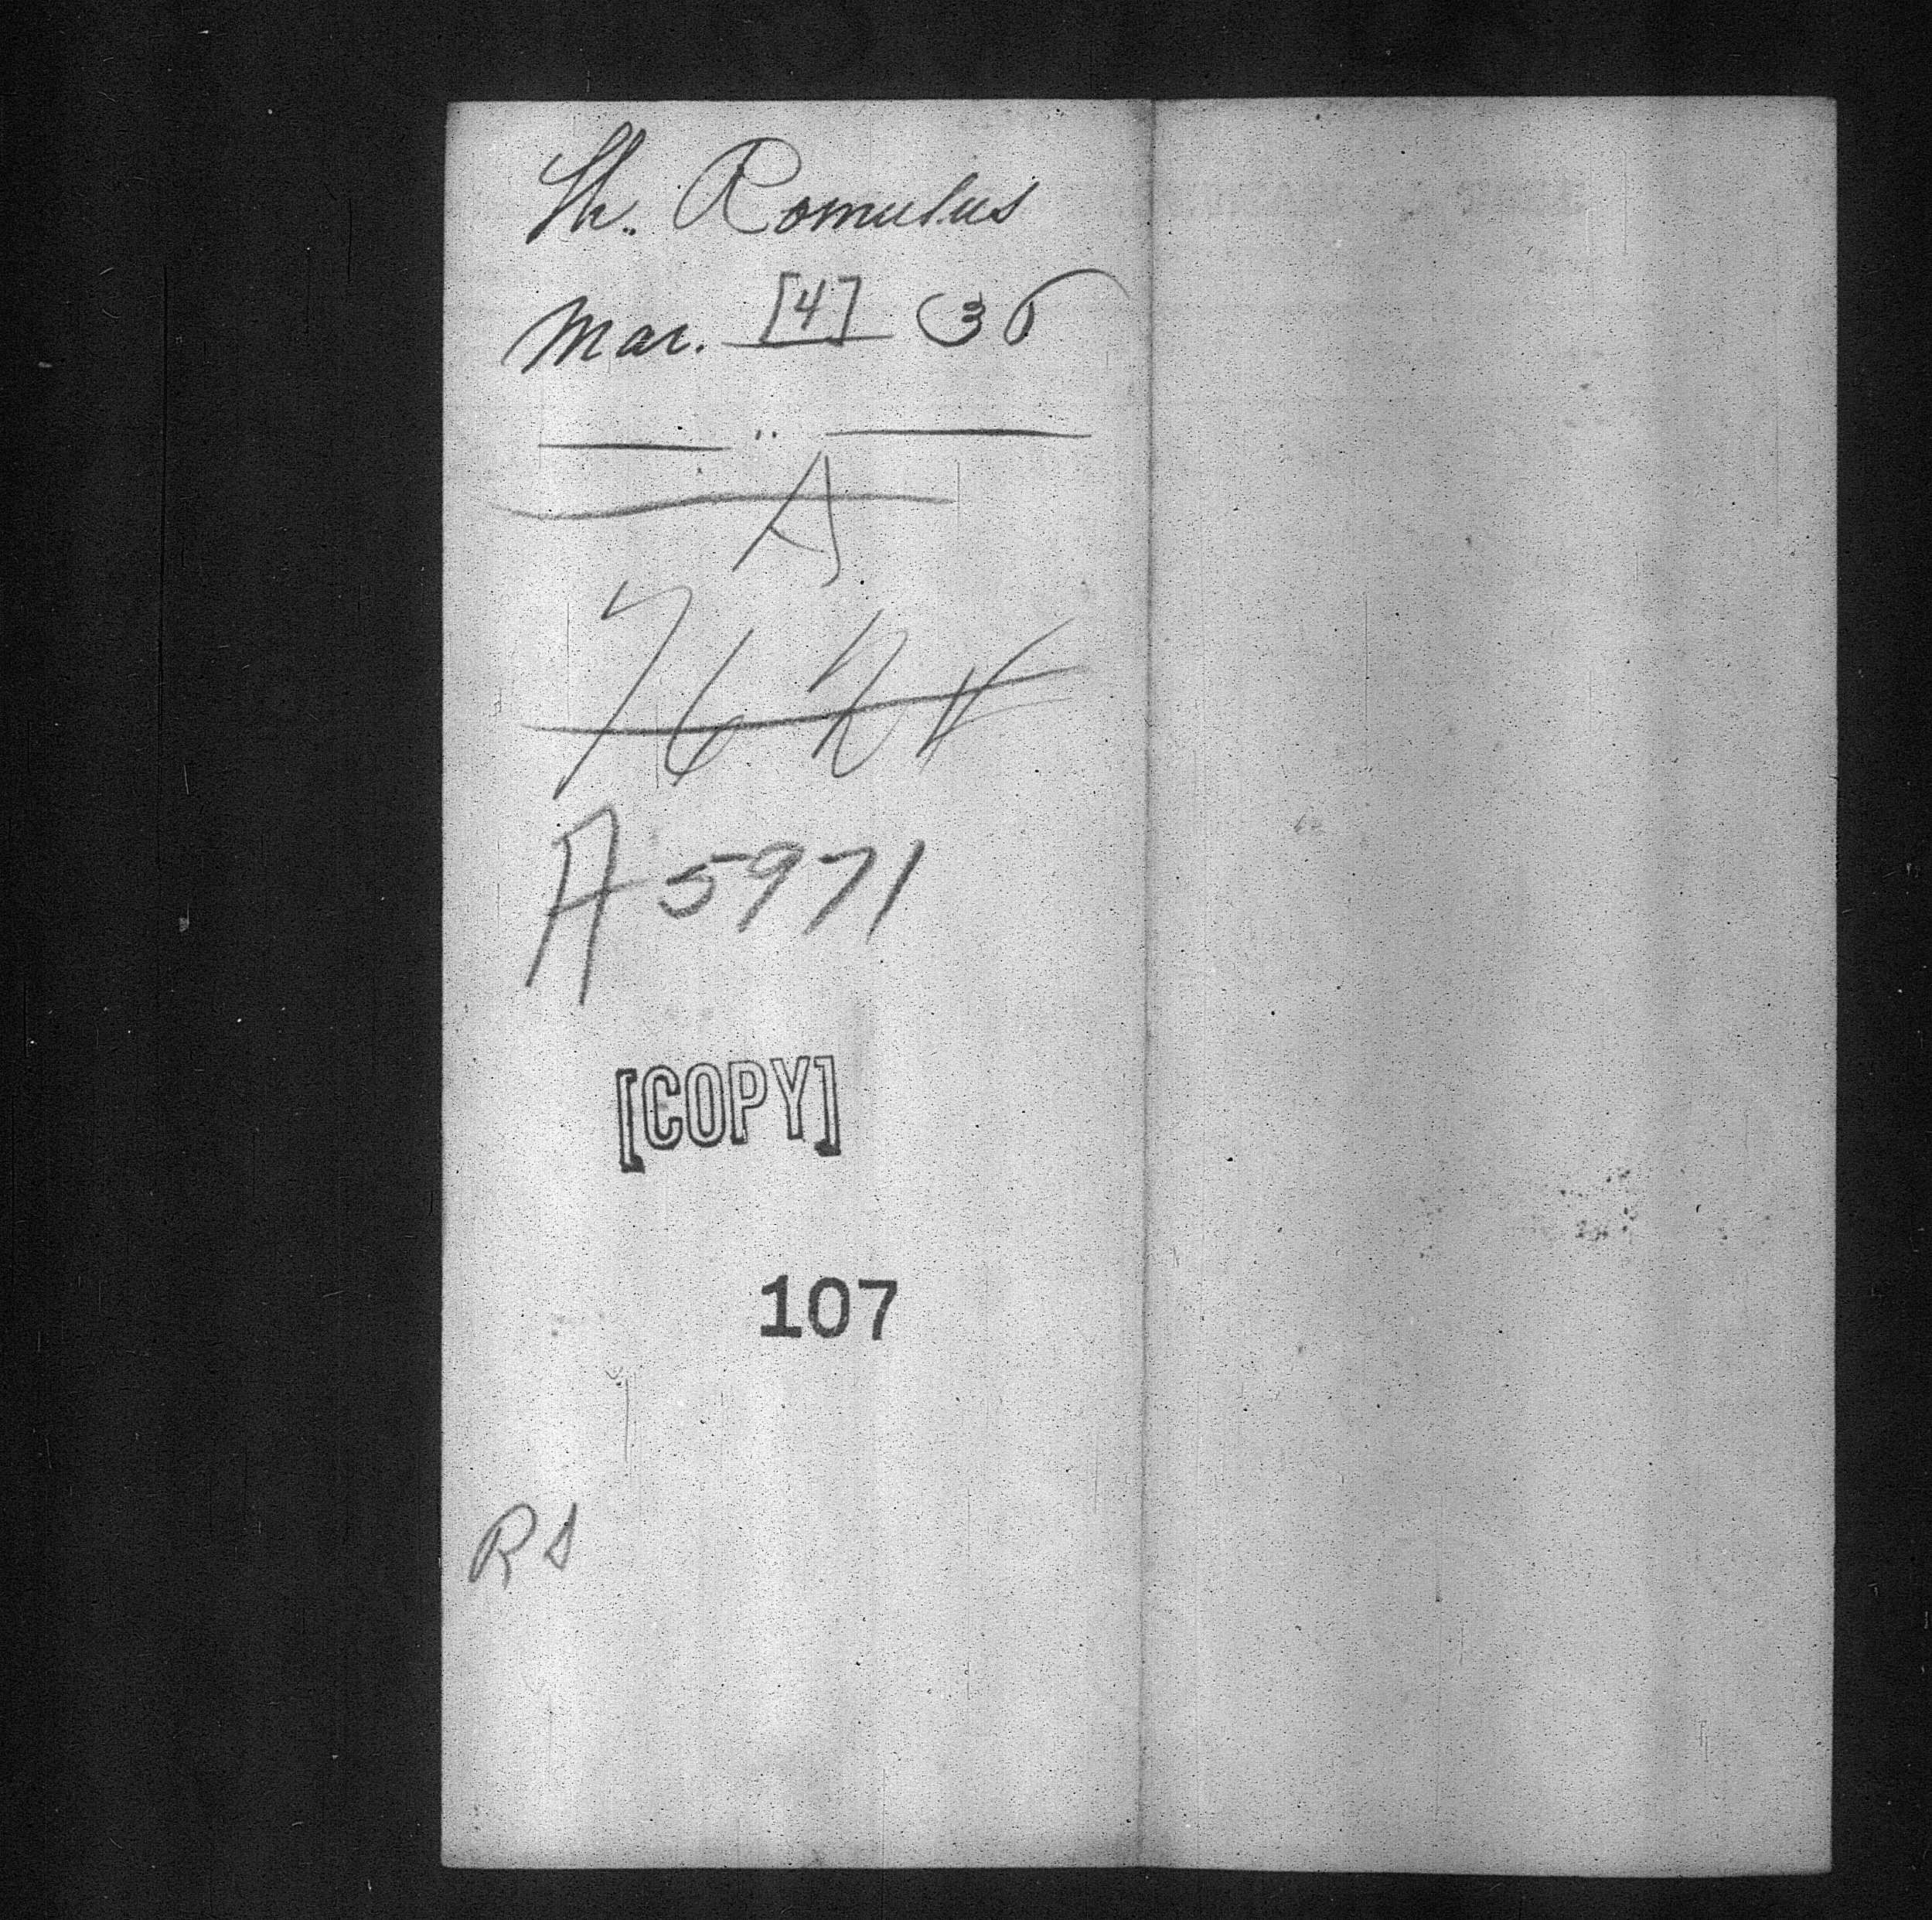 Sh. Romulus
Mar. [4] 36
A
7624
A 5971
[COPY]
107
RS